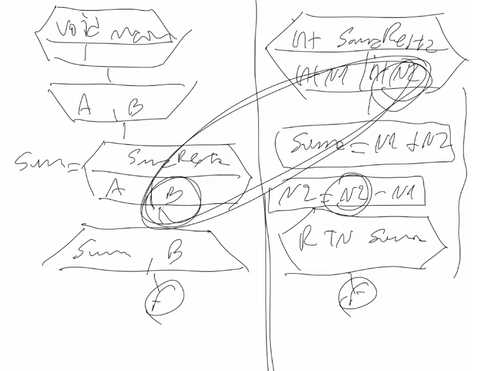 void main
A B
Suma = SumaResta
A B
Suma B
F
int SumaResta
int N1 int N2
Suma = N1 + N2
N2 = N2 - N1
RTN Suma
F